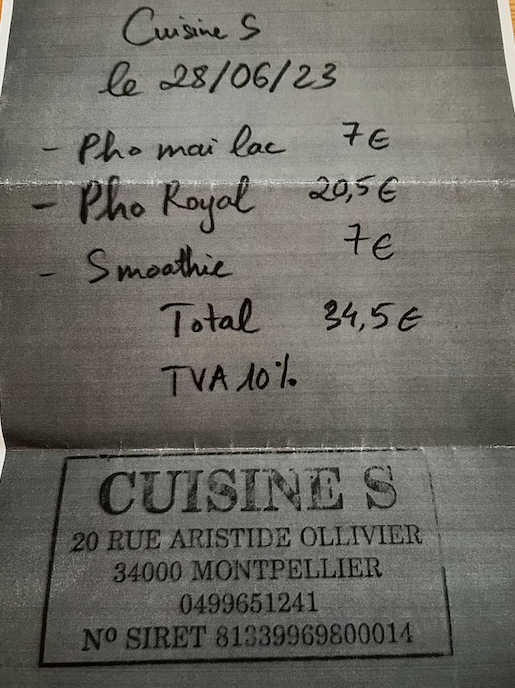 Cuisine S
le 28/06/23
- Pho mai lac 7€
- Pho Royal 20,5€
- Smoothie 7€
Total 34,5€
TVA 10%
CUISINE S
20 RUE ARISTIDE OLLIVIER
34000 MONTPELLIER
0499651241
Nº SIRET 81339969800014